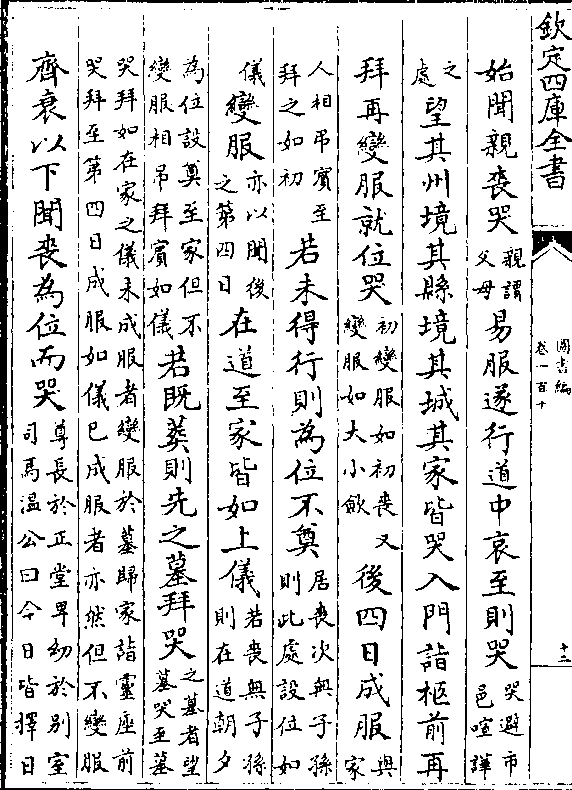 欽定四庫全書
圖書編
卷一百十
十二
始聞親喪哭親謂父母易服遂行道中哀至則哭哭避市邑喧譁
之處望其州境其縣境其城其家皆哭入門詣柩前再
拜再變服就位哭初變服如初喪又變服如大小歛後四日成服與家
人相弔賓至拜之如初若未得行則為位不奠居喪次無子孫則此處設位如
儀變服亦以聞後之第四日在道至家皆如上儀若喪無子孫則在道朝夕
為位設奠至家但不變服相弔拜賓如儀若既葬則先之墓拜哭之墓者望墓哭至墓
哭拜如在家之儀未成服者變服於墓歸家詣靈座前哭拜至第四日成服如儀已成服者亦然但不變服
齊衰以下聞喪為位而哭尊長於正堂卑幼於別室司馬溫公曰今日皆擇日